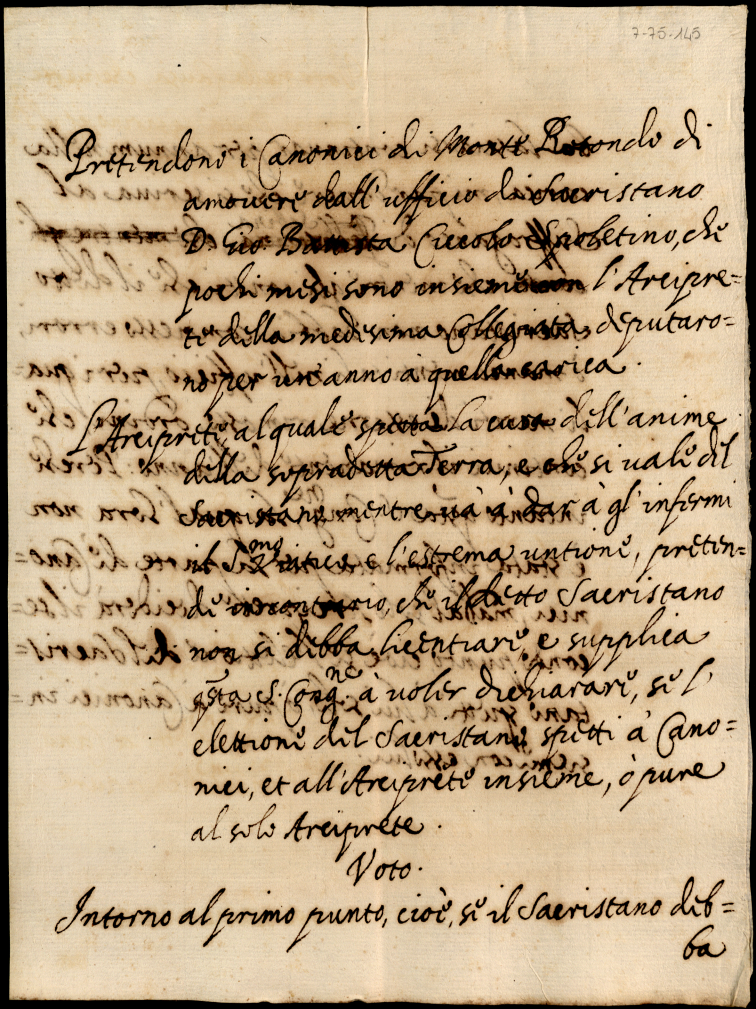 7-75-145
Pretendono i Canonici di Monte Rotondo di
amouere dall'ufficio di Sacristano
D. Gio Battista Ciccolo Spoletino, che
pochi mesi sono insieme con l'Arcipre=
te della medesima Collegiata deputaro=
no per un'anno à quella carica.
L'Arciprete, al quale spetta la cura dell'anime
della sopradetta Terra, e che si uale del
Sacristano mentre uà à dar à gl'infermi
il S.mo Viatico e l'estrema untione, preten=
de in contrario, che il detto Sacristano
non si debba licentiare, e supplica
qsta S. Cong.ne à uoler dichiarare, se l'
elettione del Sacristano spetti à Cano=
nici, et all'Arciprete insieme, ò pure
al solo Arciprete.
Voto.
Intorno al primo punto, cioè, se il Sacristano deb=
ba